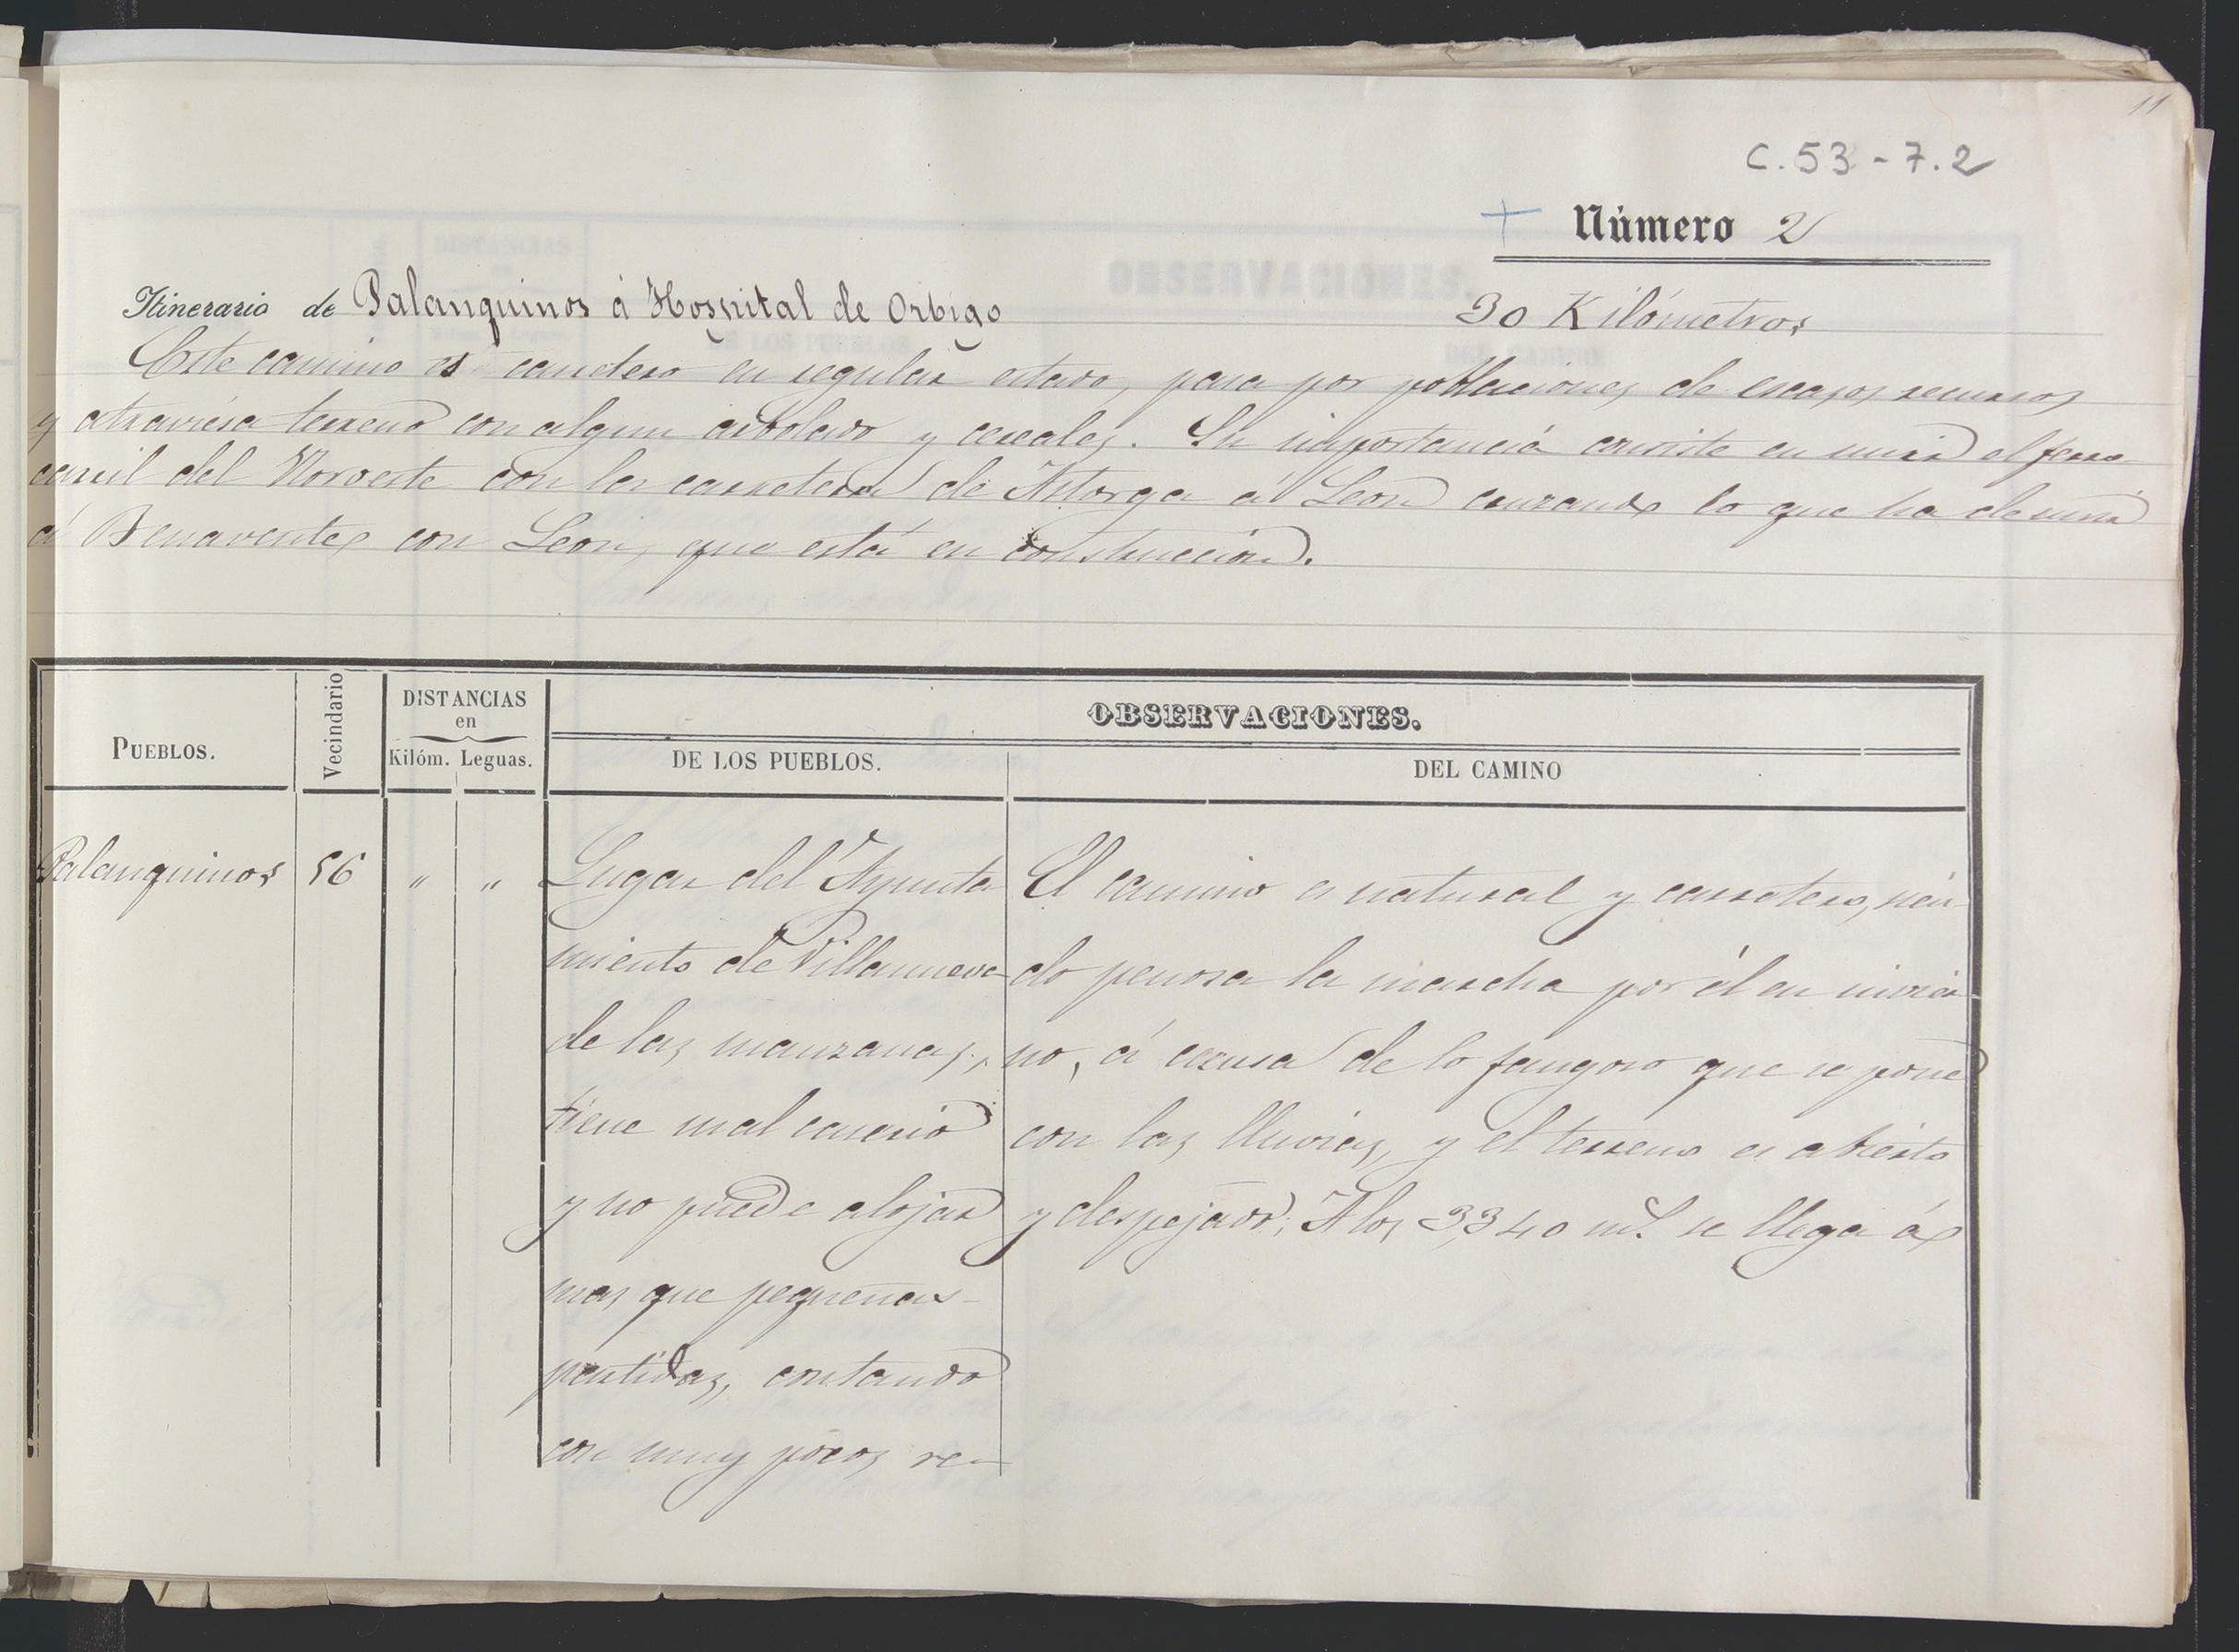 11
C. 53 - 7. 2
+ Número 2
Itinerario de Palanquinos á Hospital de Orbigo 30 Kilómetros
Este camino es carretero en regular estado, pasa por poblaciones de escasos recursos
y atraviesa terreno con algun arbolado y cereales. Su importancia consiste en unir el ferro
carril del Noroeste con la carretera de Astorga á Leon cruzando lo que ha de unir
á Benavente con Leon, que está en construccion.
PUEBLOS. Vecindario DISTANCIAS en Kilóm. Leguas. OBSERVACIONES. DE LOS PUEBLOS. DEL CAMINO
Palanquinos 56 " "
Lugar del Ayunta
miento de Villanueva
de las manzanas,
tiene mal caserio
y no puede alojar
mas que pequeñas
partidas, contando
con muy pocos re-
El camino es natural y carretero, sien
do penosa la marcha por él en invier
no, á causa de lo fangoso que se pone
con las lluvias, y el terreno es abierto
y despejado; A los 3,340 ms. se llega á